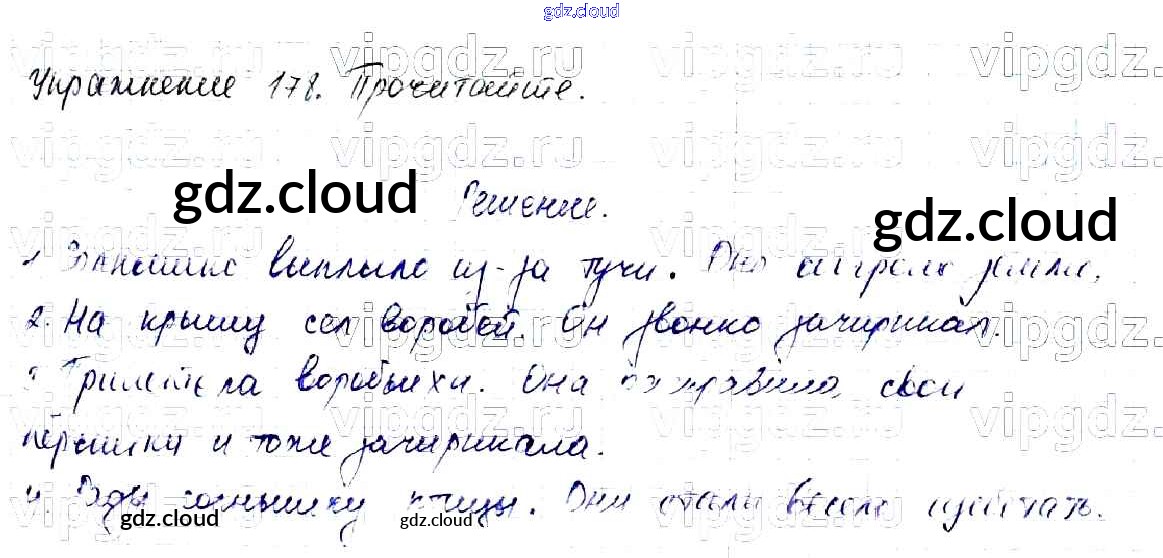 gdz.cloud
vipgdz.ru vipgdz.ru vipgdz.ru vipgdz.ru
Упражнение 178. Прочитайте.
vipgdz.ru vipgdz.ru vipgdz.ru vipgdz.ru
gdz.cloud Решение. gdz.cloud
1. выплыло из-за тучи. Оно землю.
2. На крышу сел воробей. Он звонко зачирикал.
3. Прилетела воробьиха. Она свои
пёрышки и тоже зачирикала.
4. Рады солнышку птицы. Они стали весело щебетать.
gdz.cloud gdz.cloud gdz.cloud